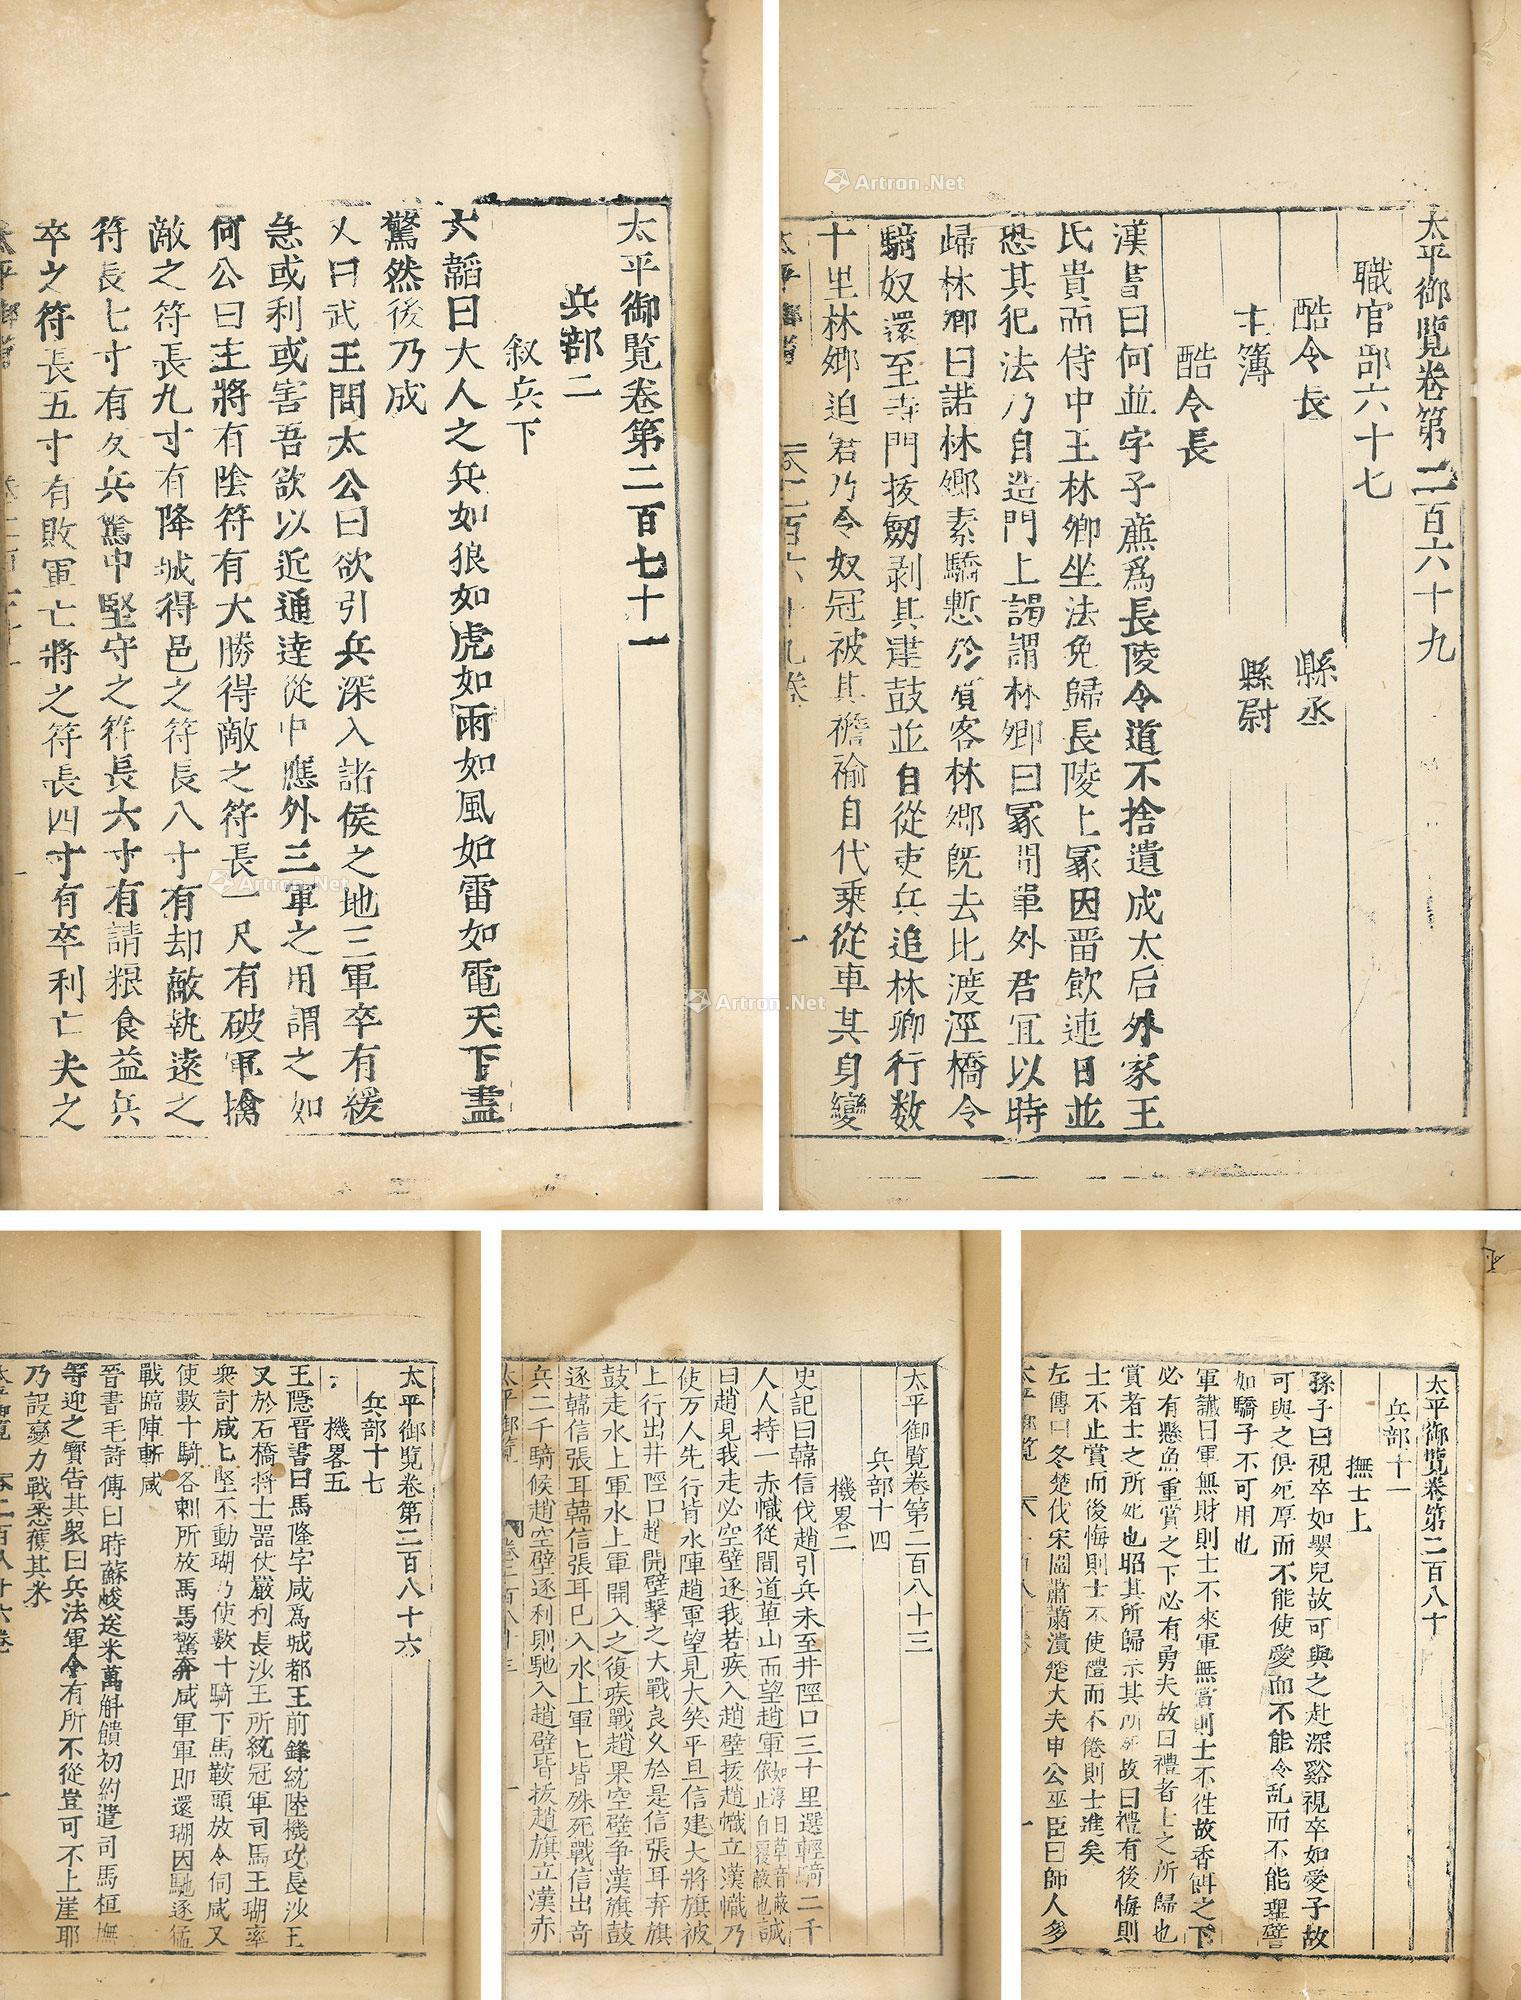 太平御覧卷第二百六十九
職官部六十七
酷令長 縣丞
主簿 縣尉
酷令長
漢書曰何並字子廉爲長陵令道不捨遺成太后外家王
氏貴而侍中王林卿坐法免歸長陵上冢因畱飲連日並
恐其犯法乃自造門上謁謂林卿曰冢間單外君宜以時
歸林卿曰諾林鄉素驕慙於賔客林鄉既去北渡涇橋令
騎奴還至寺門拔劒剥其建鼓並自從吏兵追林卿行数
十里林鄉迫窘乃令奴冠被其襜褕自代乗從車其身變
太平御覧卷第二百七十一
兵部二
叙兵下
六韜曰大人之兵如狼如虎如雨如風如雷如電天下盡
驚然後乃成
又曰武王問太公曰欲引兵深入諸侯之地三軍卒有緩
急或利或害吾欲以近通逺從中應外三軍之用謂之如
何公曰主將有陰符有大勝得敵之符長一尺有破軍擒
敵之符長九寸有降城得邑之符長八寸有却敵執遠之
符長七寸有交兵驚中堅守之符長六寸有請粮食益兵
卒之符長五寸有敗軍亡將之符長四寸有卒利亡夫之
太平御覧卷第二百八十
兵部十一
撫士上
孫子曰視卒如嬰兒故可與之赴深谿視卒如愛子故
可與之俱死厚而不能使愛而不能令乱而不能理譬
如驕子不可用也
軍讖曰軍無財則士不來軍無賞則士不徃故香餌之下
必有懸魚重賞之下必有勇夫故曰禮者士之所歸也
賞者士之所死也昭其所歸示其所死故曰禮有後悔則
士不止賞而後悔則士不使禮而不倦則士進矣
左傳曰冬楚伐宋圍蕭蕭潰楚大夫申公巫臣曰師人多
太平御覧卷第二百八十三
兵部十四
機畧二
史記曰韓信伐趙引兵未至井陘口三十里選輕騎二千
人人持一赤幟從間道萆山而望趙軍如淳曰萆音蔽依止自覆蔽也誠
曰趙見我走必空壁逐我若疾入趙壁拔趙幟立漢幟乃
使万人先行皆水陣趙軍望見大笑平旦信建大將旗被
上行出井陘口趙開壁擊之大戰良久於是信張耳弃旗
鼓走水上軍水上軍開入之復疾戰趙果空壁争漢旗鼓
逐韓信張耳韓信張耳已入水上軍上皆殊死戰信出奇
兵二千騎候趙空壁逐利則馳入趙壁皆拔趙旗立漢赤
太平御覧卷第二百八十六
兵部十七
機畧五
王隱晉書曰馬隆字咸爲城都王前鋒統陸機攻長沙王
又於石橋將士器仗嚴利長沙王所統冠軍司馬王瑚率
衆討咸咸堅不動瑚乃使數十騎下馬鞍頭放令伺咸又
使數十騎各刺所放馬馬驚奔咸軍軍即還瑚因馳逐猛
戰臨陣斬咸
晉書毛詩傳曰時蘇峻送米萬斛饋初約遣司馬桓撫
等迎之寳告其衆曰兵法軍令有所不從豈可不上崖耶
乃設變力戰悉獲其米